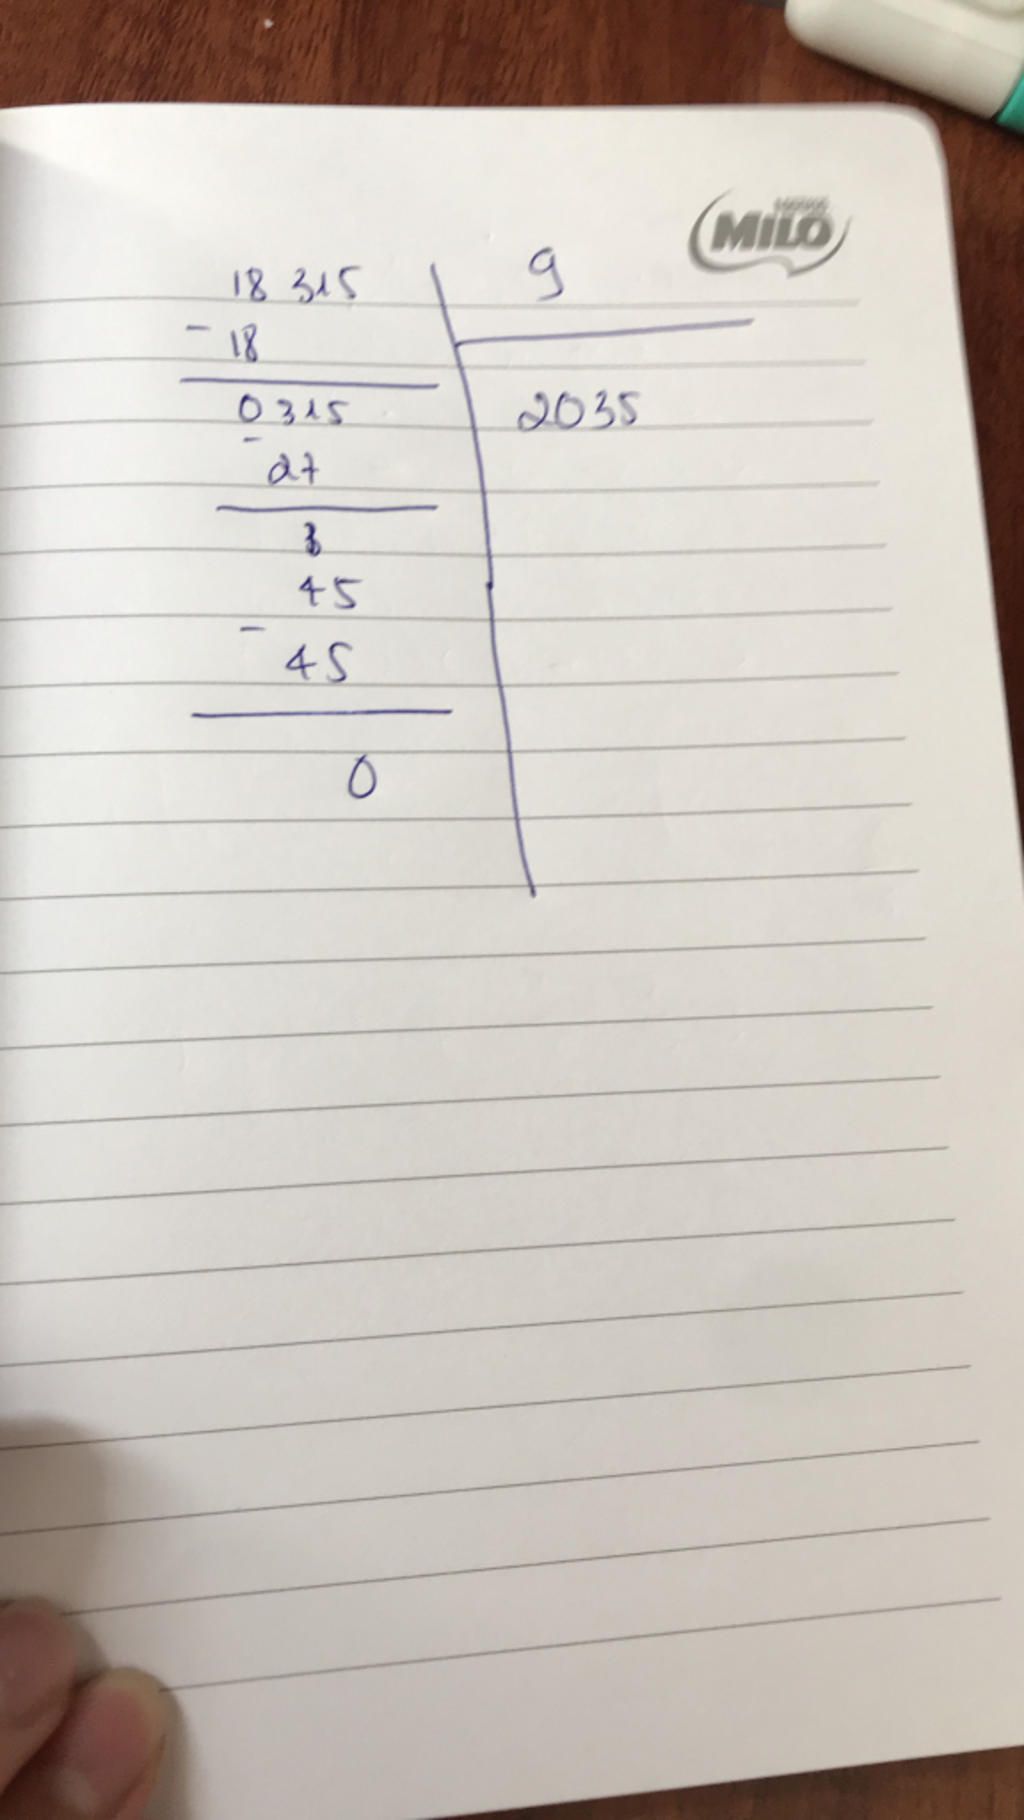 MILO
18 315 9
- 18
0315 2035
- 27
45
- 45
0